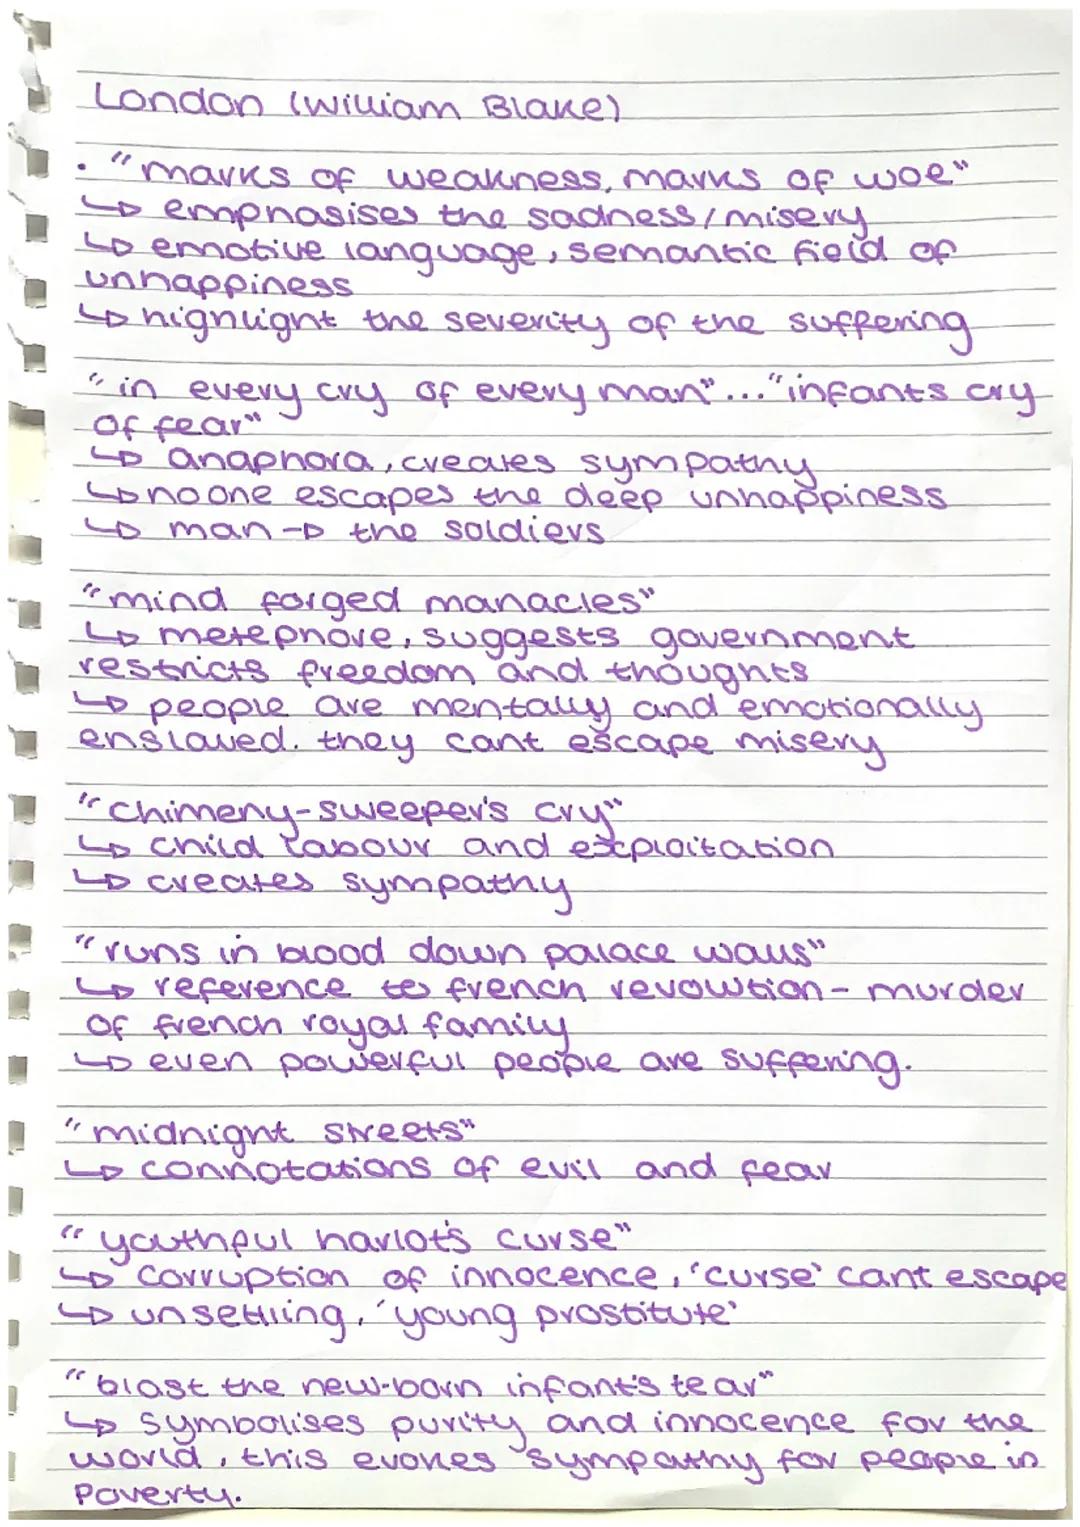 London (William Blake)
• "marks of weakness, marks of woe"
↳ emphasises the sadness/misery
↳ emotive language, semantic field of
unhappiness
↳ highlight the severity of the suffering
"in every cry of every man"..."infants cry
of fear"
↳ anaphora, creates sympathy
↳ no one escapes the deep unhappiness
↳ man → the soldiers
"mind forged manacles"
↳ metephore, suggests government
restricts freedom and thoughts
↳ people are mentally and emotionally
enslaved. they cant escape misery
"chimeny-sweeper's cry"
↳ child labour and exploitation
↳ creates sympathy
"runs in blood down palace walls"
↳ reference to french revolution - murder
of french royal family
↳ even powerful people are suffering.
"midnight streets"
↳ connotations of evil and fear
"youthful harlot's curse"
↳ corruption of innocence, 'curse' cant escape
↳ unsettling, 'young prostitute'
"blast the new-born infant's tear"
↳ symbolises purity and innocence for the
world, this evokes sympathy for people in
poverty.